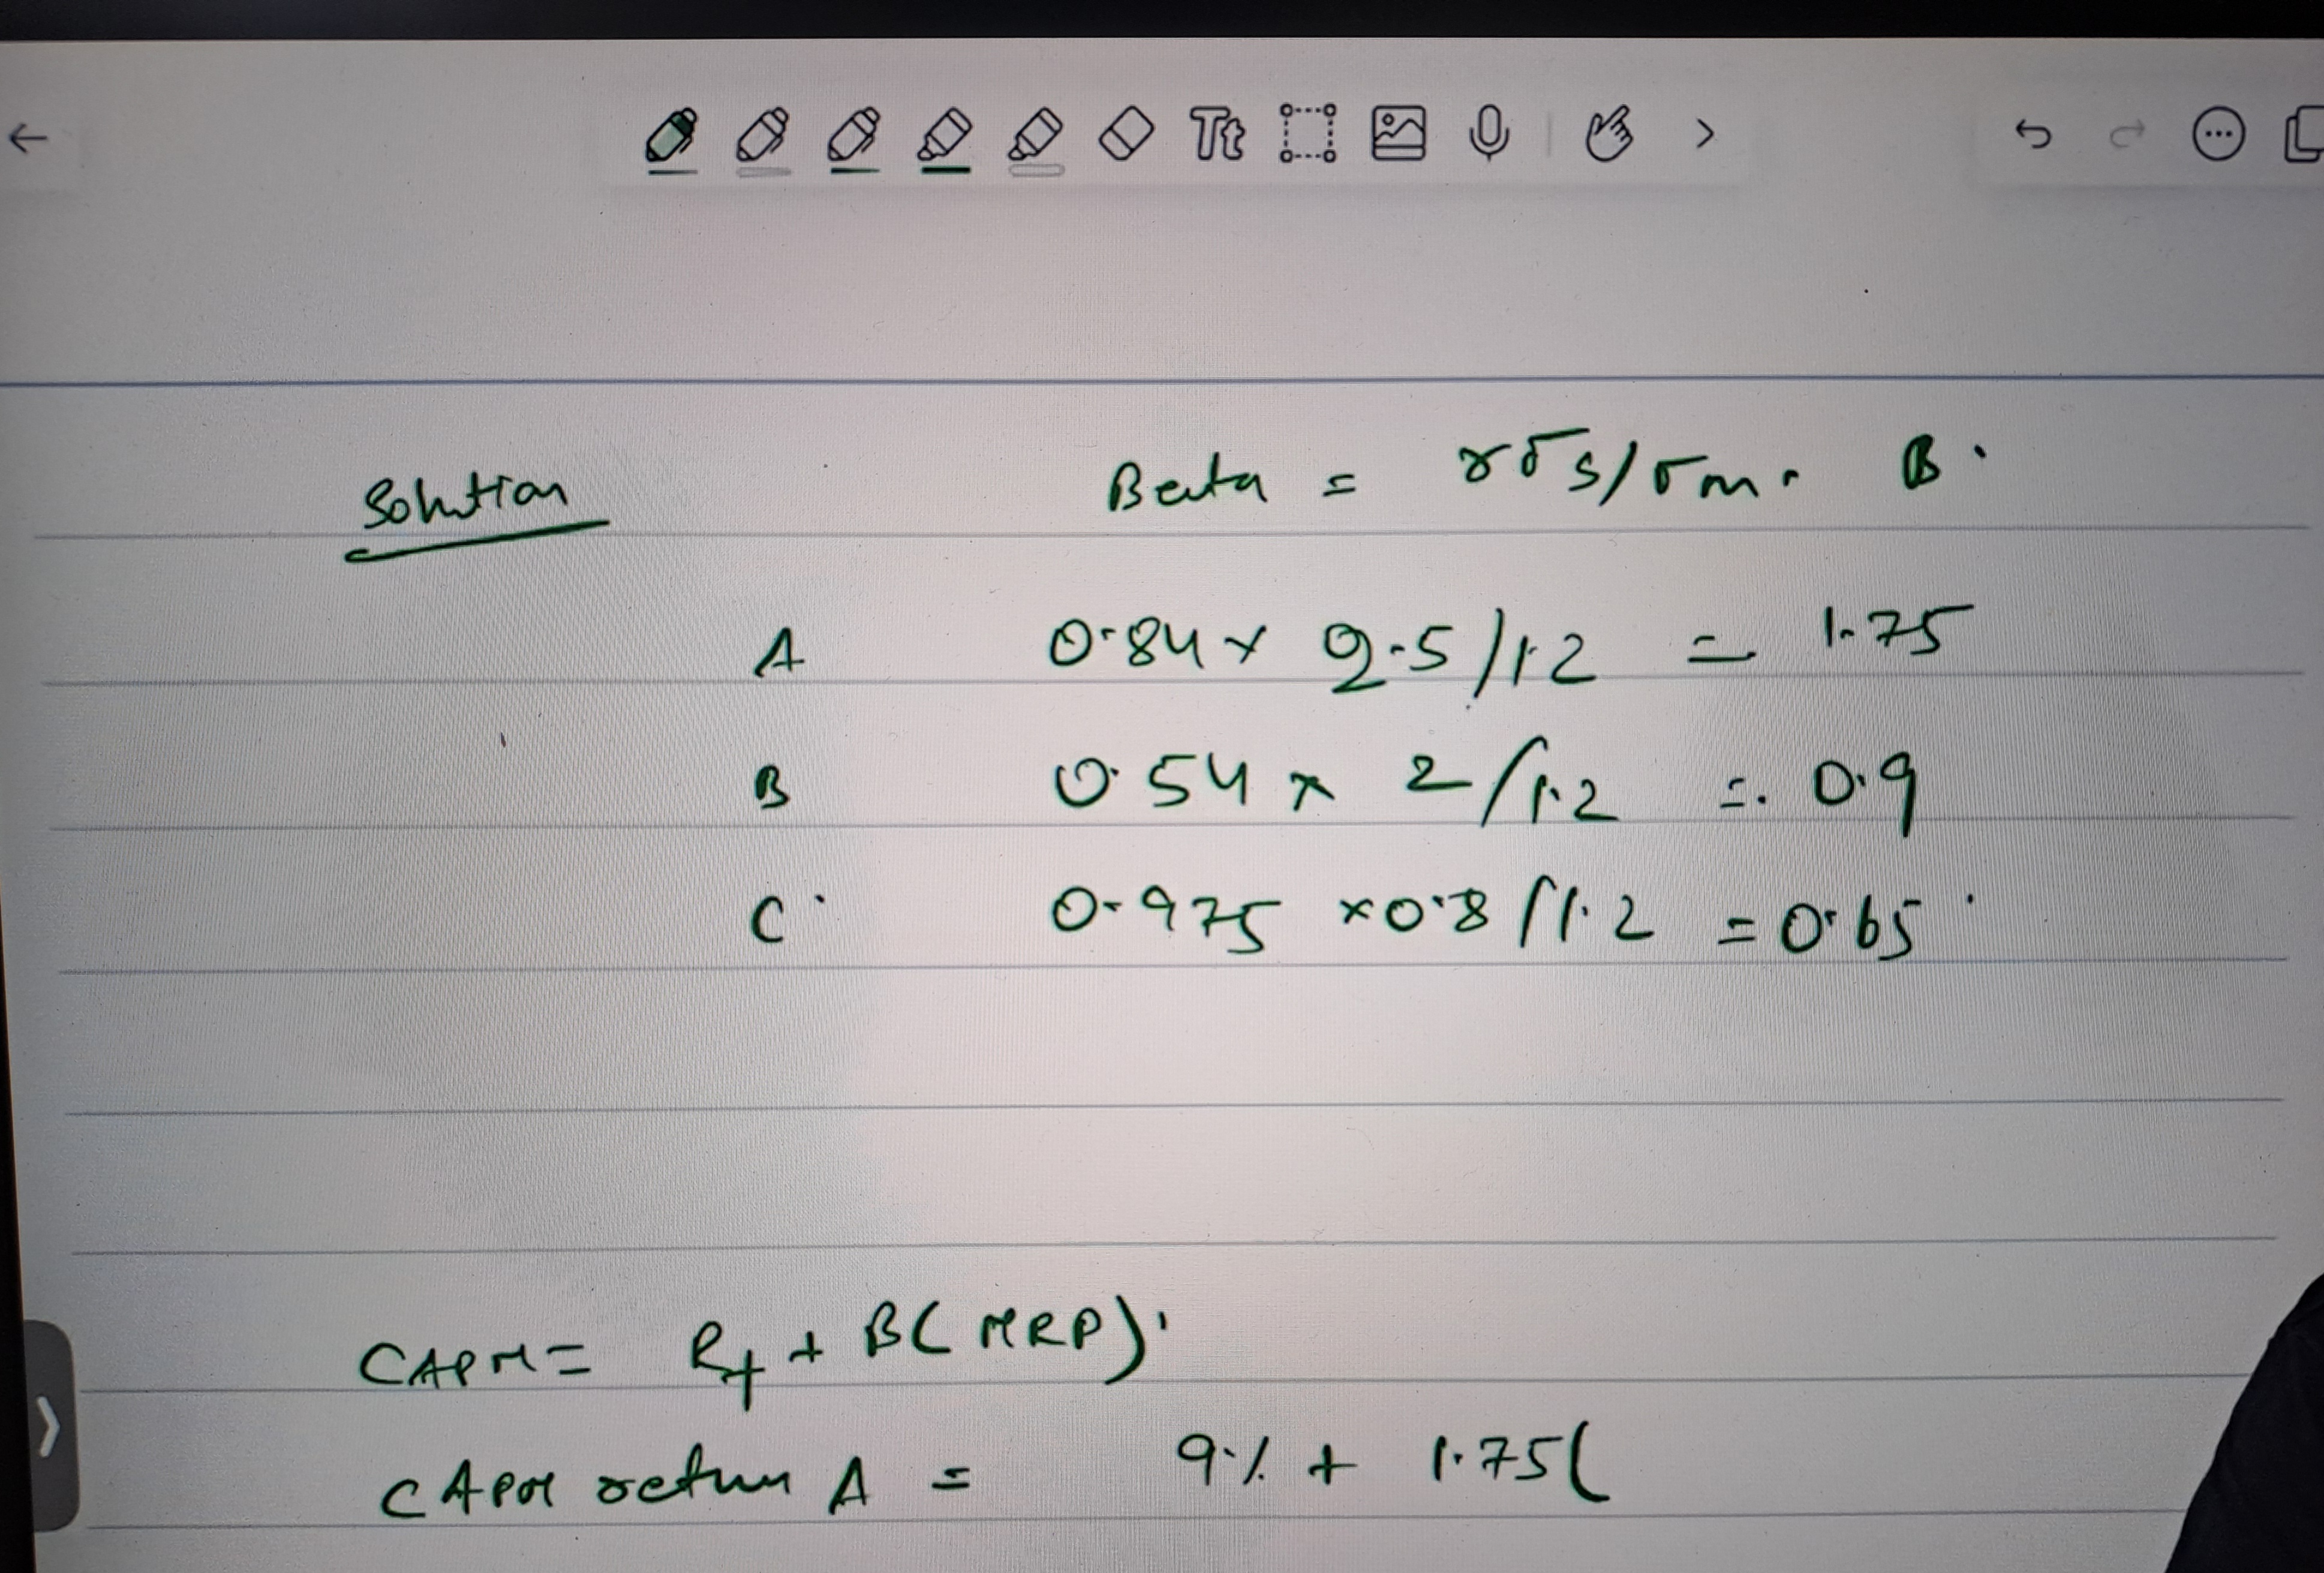 Solution Beta = rσs/σm. B.
A 0.84 x 2.5/1.2 = 1.75
B 0.54 x 2/1.2 = 0.9
C 0.975 x 0.8/1.2 = 0.65
CAPM = Rf + B(MRP)
CAPM return A = 9% + 1.75(